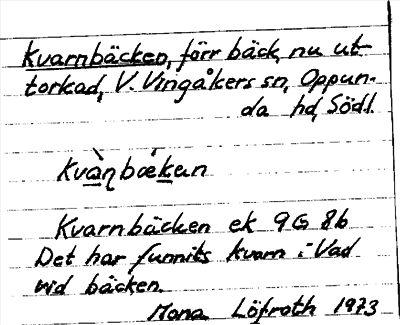 Kvarnbäcken, förr bäck, nu ut-
torkad, V. Vingåkers sn, Oppun-
da hd, Södl.
kvàɳbǽkan
Kvarnbäcken ek 9G 8b
Det har funnits kvarn i Vad
vid bäcken.
Mona Löfroth 1973